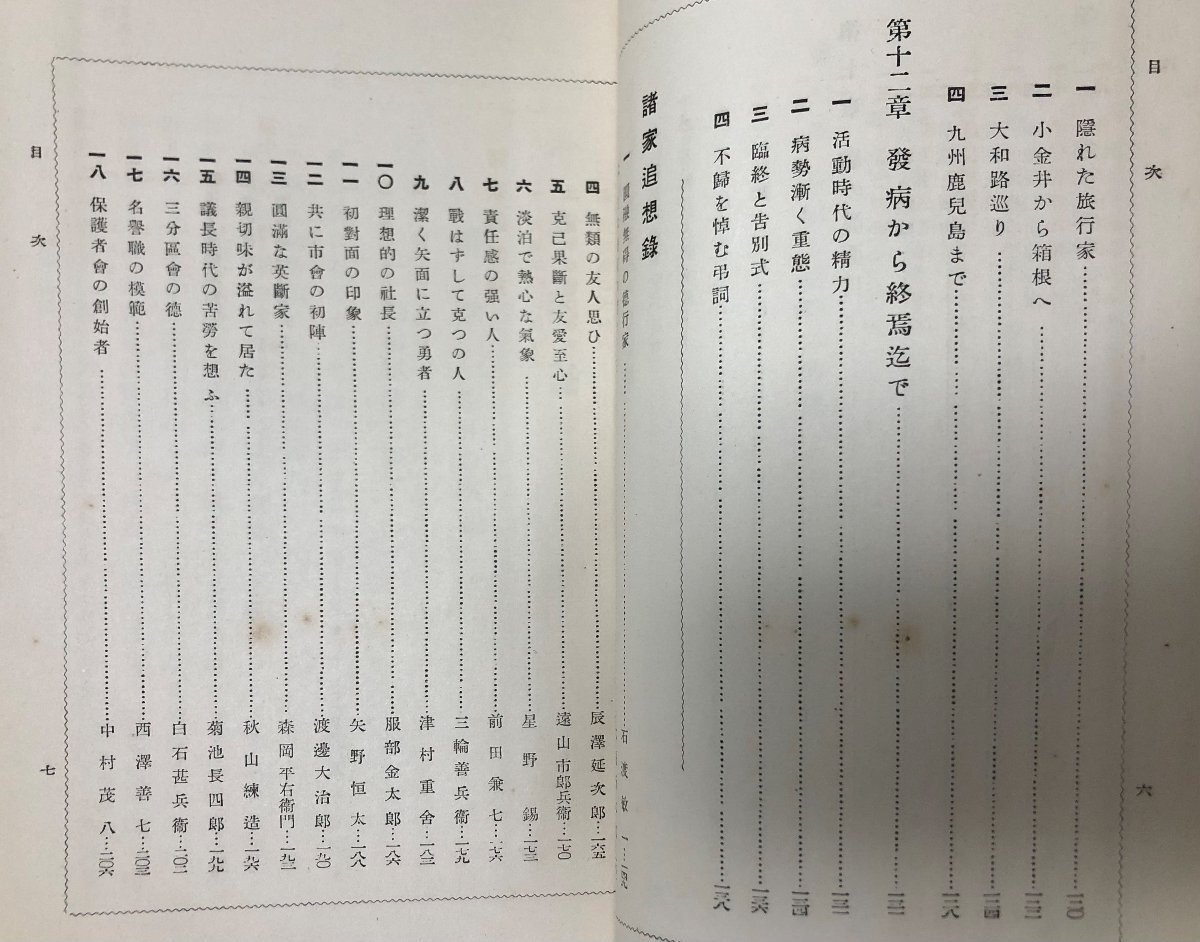 目次
一 隱れた旅行家……一二〇
二 小金井から箱根へ……一二二
三 大和路巡り……一二四
四 九州鹿兒島まで……一二八
第十二章 發病から終焉迄で……一三二
一 活動時代の精力……一三二
二 病勢漸く重態……一三四
三 臨終と告別式……一三六
四 不歸を悼む弔詞……一三八
諸家追想錄
一 の德行家……石渡敏一
六
目次
四 無類の友人思ひ……辰澤延次郎…一六五
五 克己果斷と友愛至心……遠山市郎兵衞…一七〇
六 淡泊で熱心な氣象……星野錫…一七三
七 責任感の强い人……前田兼七…一七六
八 戰はずして克つの人……三輪善兵衞…一七九
九 潔く矢面に立つ勇者……津村重舍…一八三
一〇 理想的の社長……服部金太郎…一八六
一一 初對面の印象……矢野恒太…一八八
一二 共に市會の初陣……渡邊大治郎…一九〇
一三 圓滿な英斷家……森岡平右衞門…一九三
一四 親切味が溢れて居た……秋山練造…一九六
一五 議長時代の苦勞を想ふ……菊池長四郎…一九九
一六 三分區會の德……白石甚兵衞…二〇二
一七 名譽職の模範……西澤善七…二〇三
一八 保護者會の創始者……中村茂八…二〇六
七